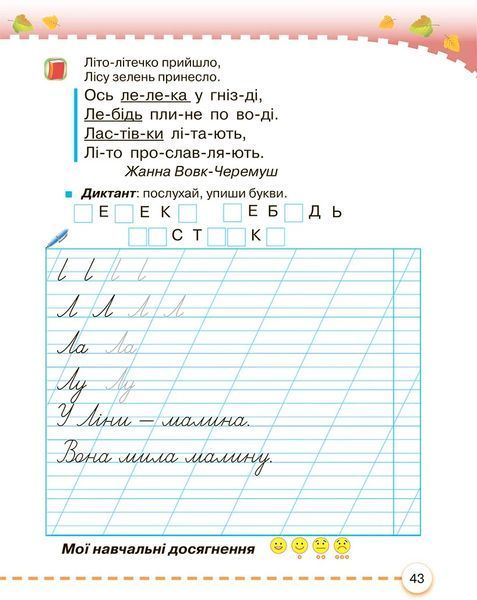 Літо-літечко прийшло,
Лісу зелень принесло.
Ось ле-ле-ка у гніз-ді,
Ле-бідь пли-не по во-ді.
Лас-тів-ки лі-та-ють,
Лі-то про-слав-ля-ють.
Жанна Вовк-Черемуш
Диктант: послухай, упиши букви.
Е Е К Е Б Д Ь
С Т К
l l l l
Л Л Л Л
Ла Ла
Лу Лу
У Ліни — малина.
Вона мила малину.
Мої навчальні досягнення
43